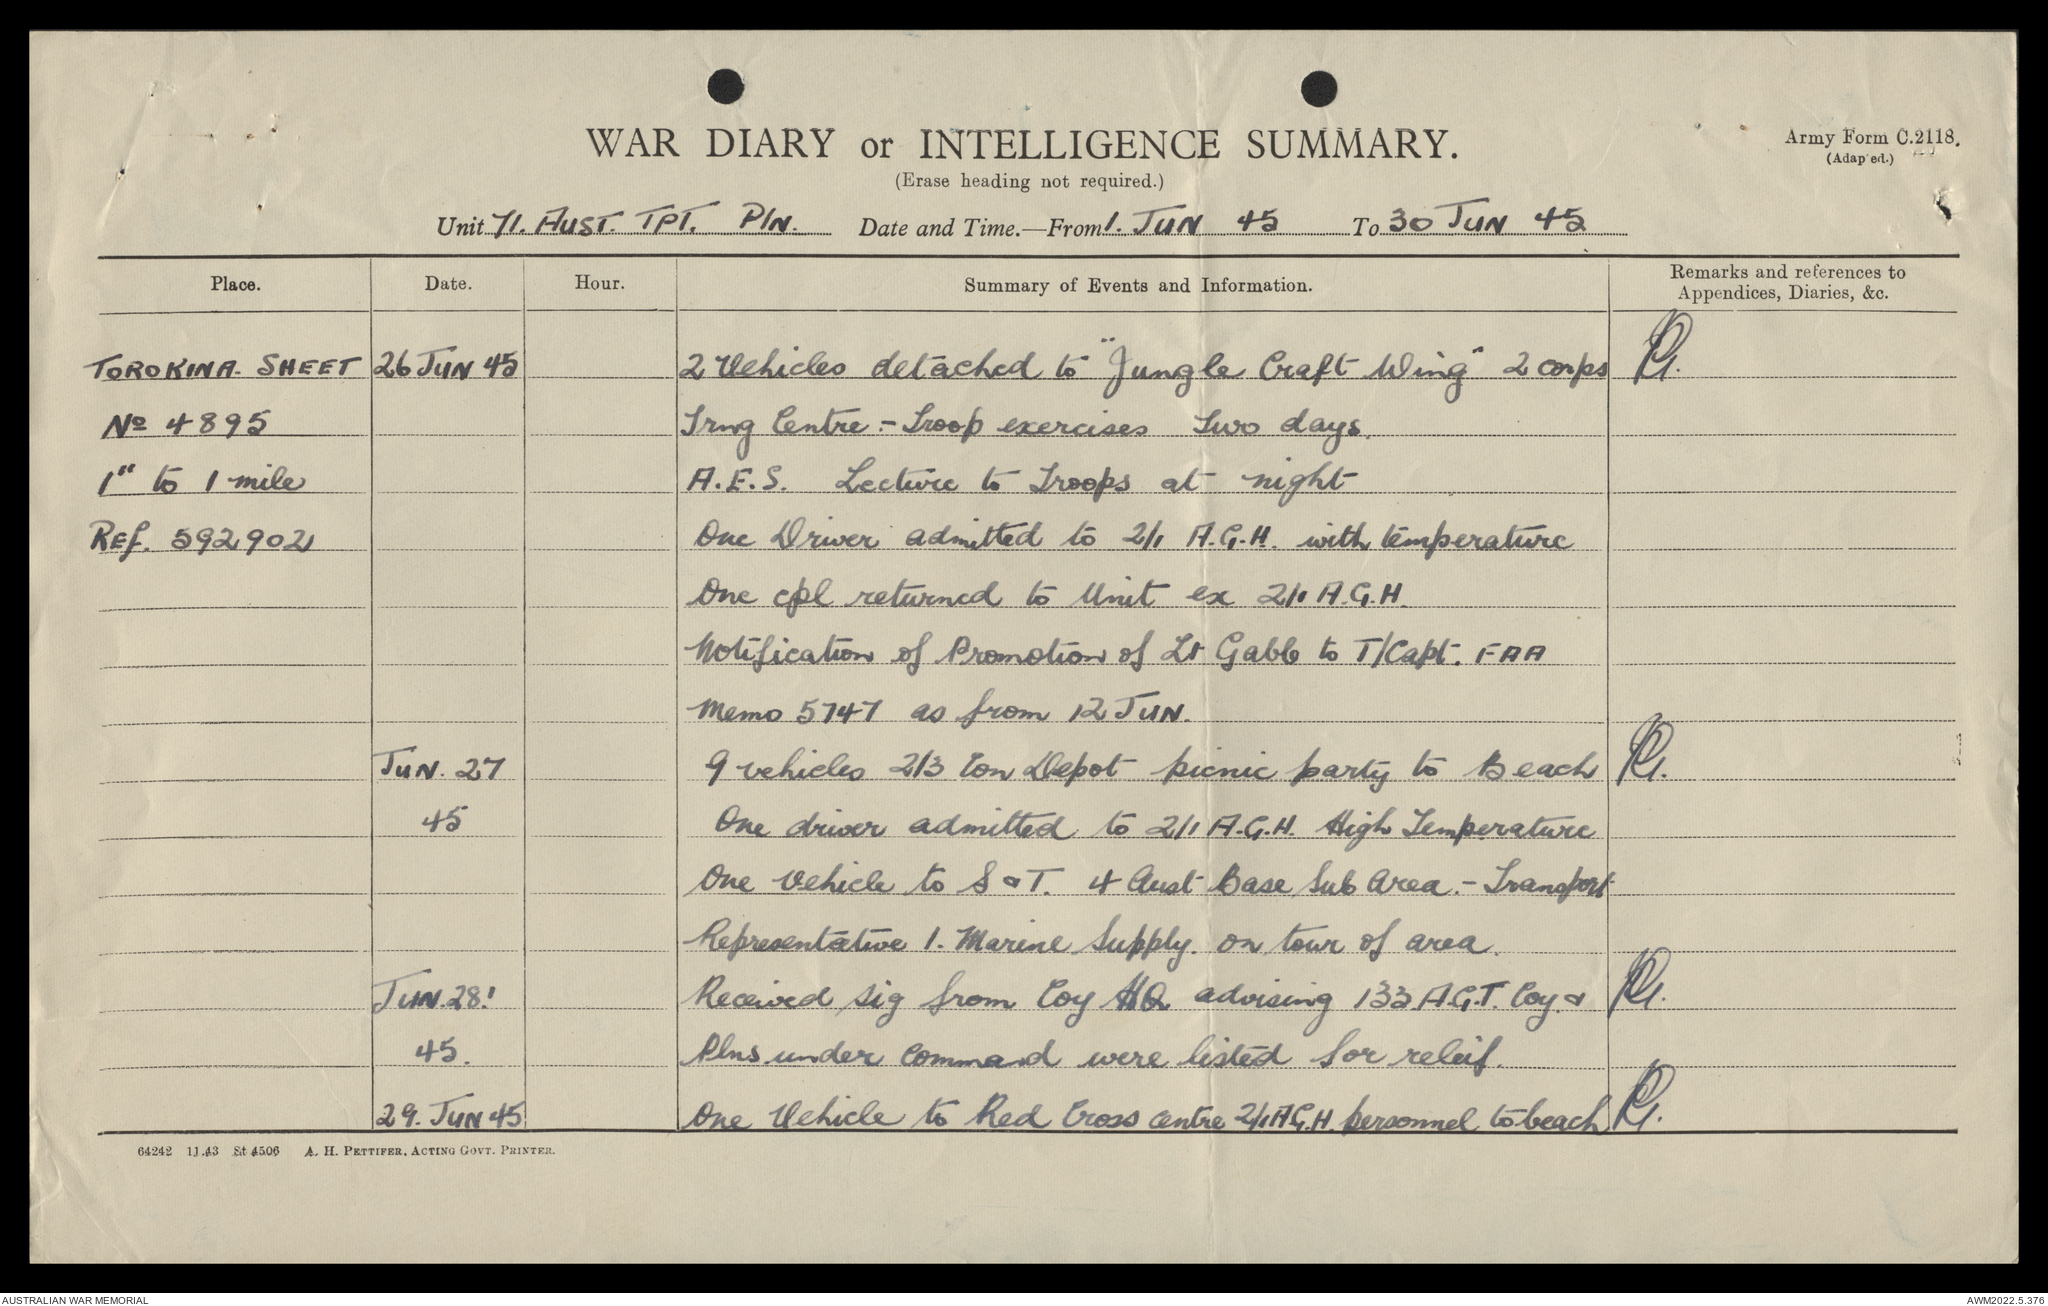 WAR DIARY or INTELLIGENCE SUMMARY.
Army Form C.2118.
(Adapted.)
(Erase heading not required.)
Unit 71. AUST. TPT. Pln. Date and Time.—From 1. JUN 45 To 30 JUN 45
Place. Date. Hour. Summary of Events and Information. Remarks and references to
Appendices, Diaries, &c.
TOROKINA SHEET 26 JUN 45 2 Vehicles detached to "Jungle Craft Wing" 2 corps
No 4895 Trng Centre - Troop exercises Two days.
1" to 1 mile A.E.S. Lecture to Troops at night
Ref. 592902 One Driver admitted to 2/1 A.G.H. with temperature
One cpl returned to Unit ex 2/1 A.G.H.
Notification of Promotion of Lt Gabb to T/Capt. FAA
Memo 5747 as from 12 JUN.
JUN. 27 9 vehicles 2/3 Con Depot picnic party to Beach
45 One driver admitted to 2/1 A.G.H. High Temperature
One Vehicle to S & T. 4 Aust Base Sub Area. - Transport
Representative 1. Marine Supply. on tour of area.
JUN. 28. Received sig from Coy HQ advising 133 A.G.T. Coy &
45. Plns under command were listed for releif.
29. JUN 45 One Vehicle to Red Cross centre 2/1 A.G.H. personnel to beach
64242 11.43 St 4506 A. H. PETTIFER, ACTING GOVT. PRINTER.
AUSTRALIAN WAR MEMORIAL AWM2022.5.376